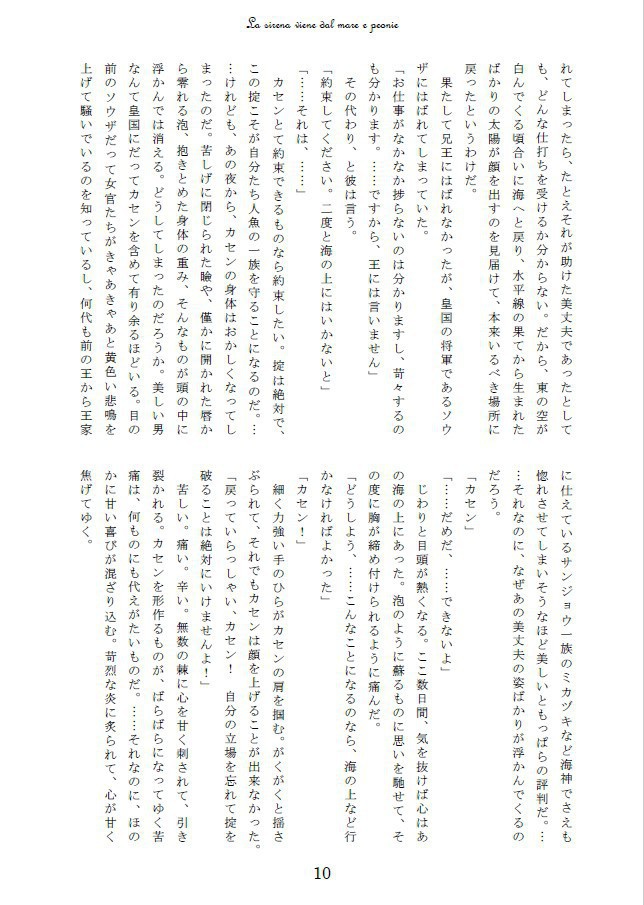 La sirena viene dal mare e peonie
れてしまったら、たとえそれが助けた美丈夫であったとして
も、どんな仕打ちを受けるか分からない。だから、東の空が
白んでくる頃合いに海へと戻り、水平線の果てから生まれた
ばかりの太陽が顔を出すのを見届けて、本来いるべき場所に
戻ったというわけだ。
果たして兄王にはばれなかったが、皇国の将軍であるソウ
ザにはばれてしまっていた。
「お仕事がなかなか捗らないのは分かりますし、苛々するの
も分かります。……ですから、王には言いません」
その代わり、と彼は言う。
「約束してください。二度と海の上にはいかないと」
「……それは、……」
カセンとて約束できるものなら約束したい。掟は絶対で、
この掟こそが自分たち人魚の一族を守ることになるのだ。…
…けれども、あの夜から、カセンの身体はおかしくなってし
まったのだ。苦しげに閉じられた瞼や、僅かに開かれた唇か
ら零れる泡、抱きとめた身体の重み、そんなものが頭の中に
浮かんでは消える。どうしてしまったのだろうか。美しい男
なんて皇国にだってカセンを含めて有り余るほどいる。目の
前のソウザだって女官たちがきゃあきゃあと黄色い悲鳴を
上げて騒いでいるのを知っているし、何代も前の王から王家
に仕えているサンジョウ一族のミカヅキなど海神でさえも
惚れさせてしまいそうなほど美しいともっぱらの評判だ。…
…それなのに、なぜあの美丈夫の姿ばかりが浮かんでくるの
だろう。
「カセン」
「……だめだ、……できないよ」
じわりと目頭が熱くなる。ここ数日間、気を抜けば心はあ
の海の上にあった。泡のように蘇るものに思いを馳せて、そ
の度に胸が締め付けられるように痛んだ。
「どうしよう、……こんなことになるのなら、海の上など行
かなければよかった」
「カセン！」
細く力強い手のひらがカセンの肩を掴む。がくがくと揺さ
ぶられて、それでもカセンは顔を上げることが出来なかった。
「戻っていらっしゃい、カセン！　自分の立場を忘れて掟を
破ることは絶対にいけませんよ！」
苦しい。痛い。辛い。無数の棘に心を甘く刺されて、引き
裂かれる。カセンを形作るものが、ばらばらになってゆく苦
痛は、何ものにも代えがたいものだ。……それなのに、ほの
かに甘い喜びが混ざり込む。苛烈な炎に炙られて、心が甘く
焦げてゆく。
10